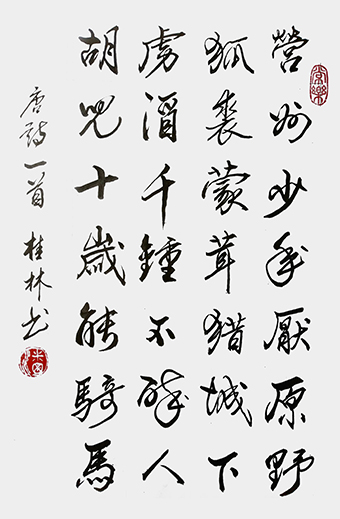 營州少年厭原野
狐裘蒙茸猎城下
虜酒千鍾不醉人
胡兒十歲能騎馬
唐詩一首 桂林书
常樂